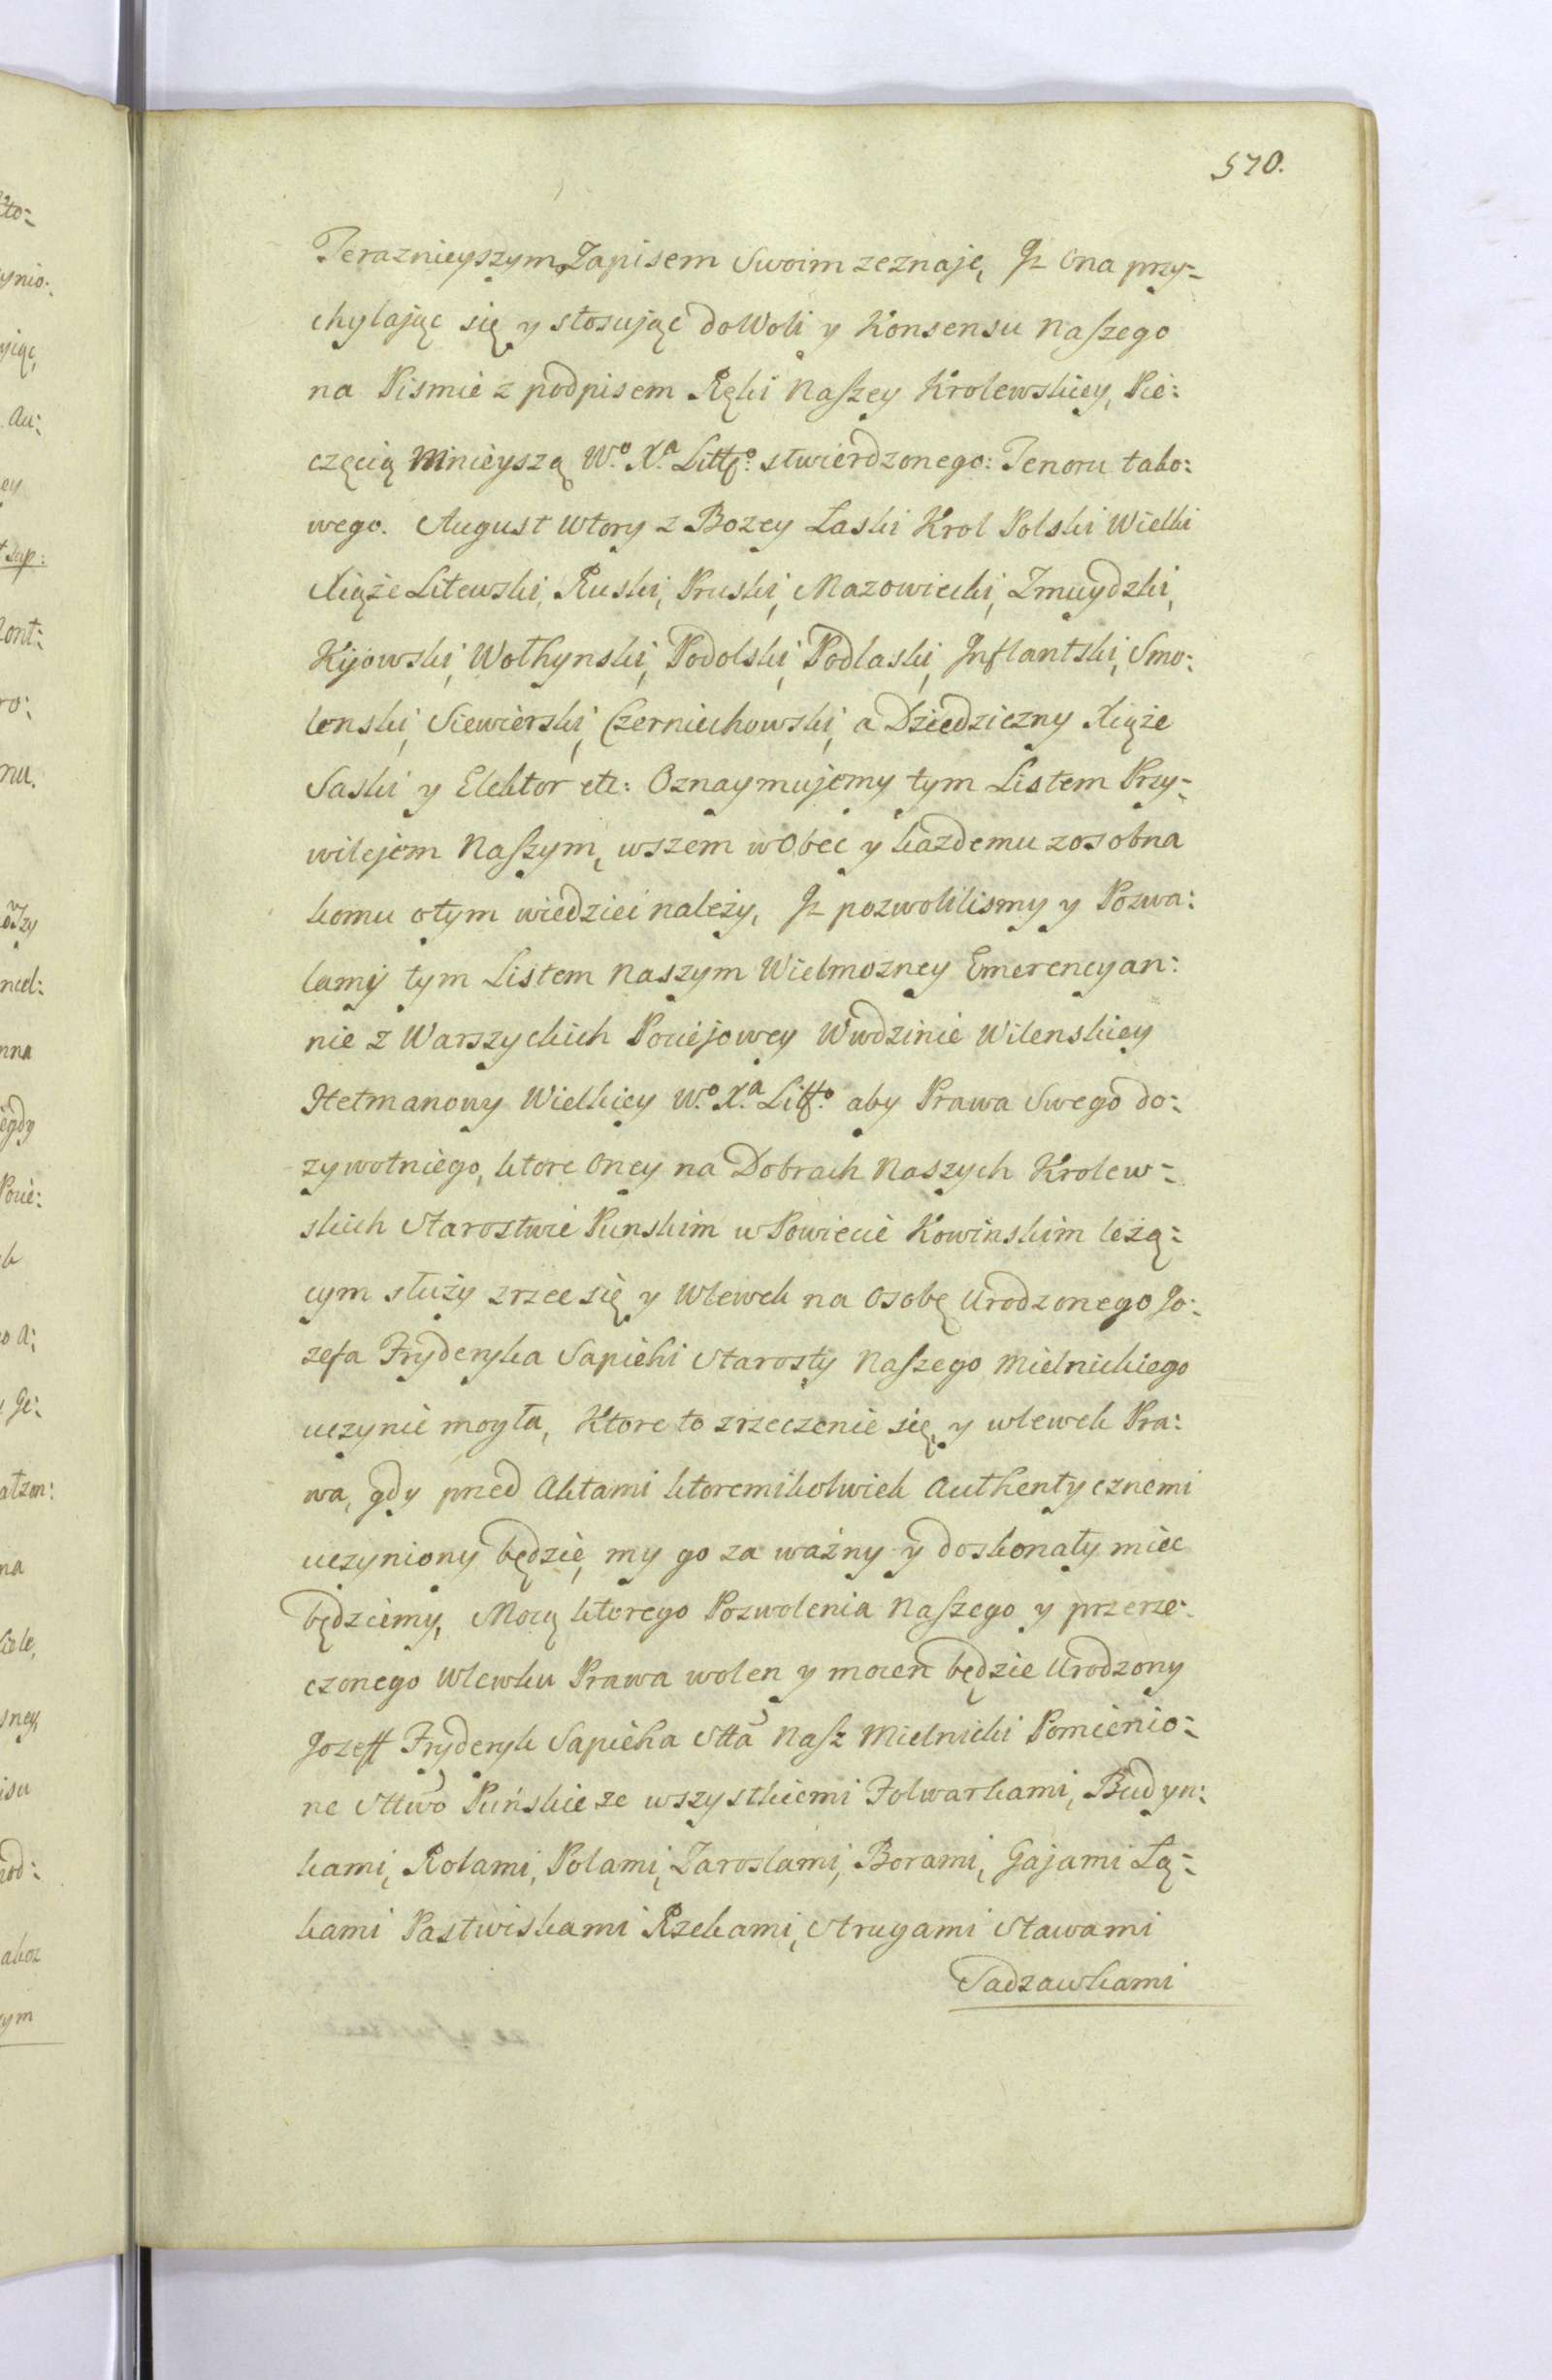 570.
Teraznieyszym Zapisem Swoim zeznaje, Jż Ona przy-
chylając się y stosując do Woli y Konsensu Naszego
na Pismie z podpisem Ręki Naszey Krolewskiey, Pie:
częcią Mnieyszą W.º X.ª Littº: stwierdzonego: Tenoru tako:
wego. August wtory z Bozey Łaski Krol Polski Wielki
Xiąże Litewski, Ruski, Pruski, Mazowiecki, Zmuydzki,
Kijowski, Wołhynski, Podolski, Podlaski, Inflantski, Smo:
lenski, Siewierski, Czerniechowski, a Dziedziczny Xiąże
Saski y Elektor etc: Oznaymujemy tym Listem Przy-
wilejem Naszym, wszem w Obec y kazdemu zosobna
komu o tym wiedziec należy, Jż pozwolilismy y Pozwa:
lamy tym Listem Naszym Wielmozney Emerencyan:
nie z Warszyckich Pociejowey Wwdzinie Wilenskiey
Hetmanowy Wielkiey W.º X.ª Littº. aby Prawa Swego do-
zywotniego, ktore Oney na Dobrach Naszych Krolew-
skich Starostwie Punskim w Powiecie Kowinskim leżą-
cym służy zrzec się y Wlewek na Osobę Urodzonego Jo:
zefa Fryderyka Sapiehi Starosty Naszego Mielnickiego
uczynić mogła, Ktore to zrzeczenie się, y wlewek Pra:
wa, gdy przed Aktami ktoremikolwiek Authentycznemi
uczyniony będzie, my go za ważny y doskonały miec
będziemy, Mocą ktorego Pozwolenia Naszego y przerze-
czonego Wlewku Prawa wolen y mocen będzie Urodzony
Jozeff Fryderyk Sapieha Stta Nasz Mielnicki Pomienio-
ne Sttwo Puńskie ze wszystkiemi Folwarkami, Budyn:
kami, Rolami, Polami, Zaroslami, Borami, Gajami Łą-
kami Pastwiskami Rzekami, Strugami Stawami
Sadzawkami